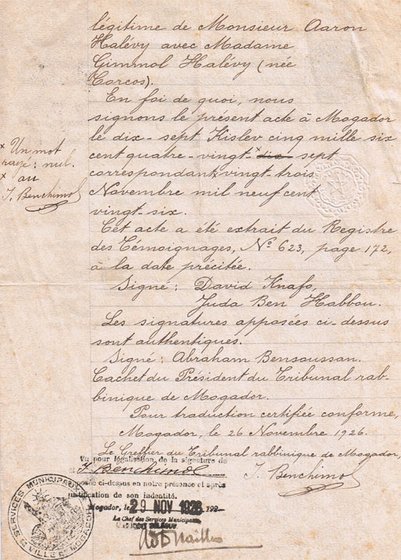 légitime de Monsieur Aaron
Halévy avec Madame
Gimmol Halévy (née
Corcos).
En foi de quoi, nous
signons le présent acte à Mogador
le dix-sept Kislev cinq mille six
cent quatre-vingt-x dix sept
correspondant, vingt trois
Novembre mil neuf cent
vingt-six.
x Un mot
rayé : nul.
x au
J. Benchimol
Cet acte a été extrait du Registre
des Témoignages, No 623, page 172,
à la date précitée.
Signé : David Knafo,
Juda Ben Habbou.
Les signatures apposées ci-dessus
sont authentiques.
Signé : Abraham Bensoussan.
Cachet du Président du Tribunal rab-
binique de Mogador.
Pour traduction certifiée conforme,
Mogador, le 26 Novembre 1926.
Le Greffier du Tribunal rabbinique de Mogador,
J. Benchimol
Vu pour légalisation, de la signature de
J. Benchimol
ci-dessus en notre présence et après
justification de son indentité.
Mogador, le 29 NOV 1926 192
Le Chef des Services Municipaux
SERVICES MUNICIPAUX
VILLE MOGADOR